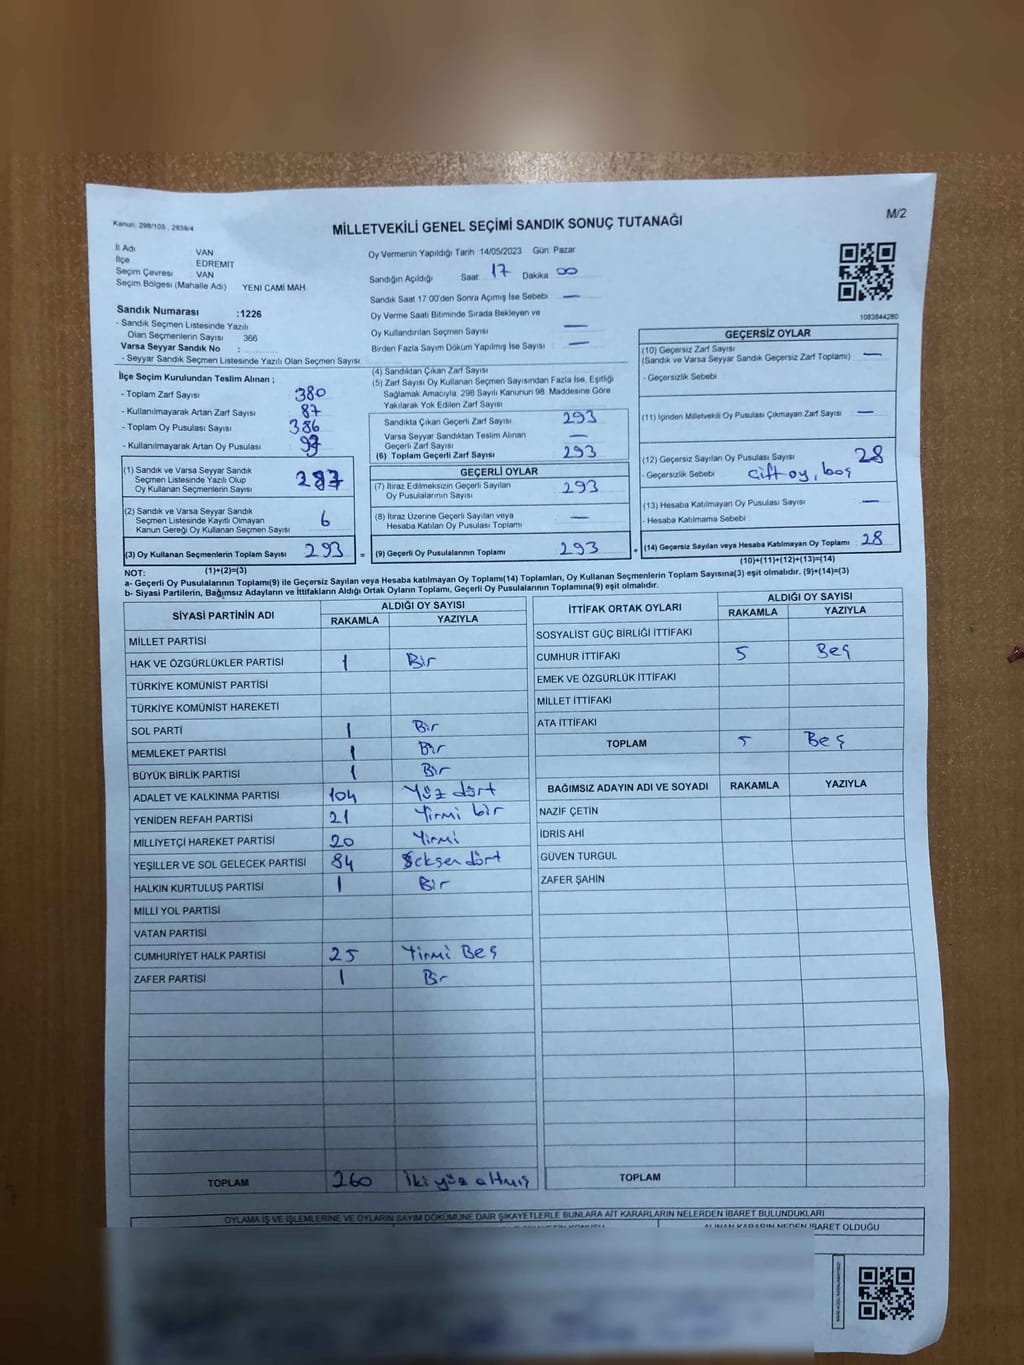 M/2
Kanun; 298/105 , 2839/4
MİLLETVEKİLİ GENEL SEÇİMİ SANDIK SONUÇ TUTANAĞI
İl Adı VAN
İlçe EDREMİT
Seçim Çevresi VAN
Seçim Bölgesi (Mahalle Adı) YENİ CAMİ MAH.
Sandık Numarası :1226
- Sandık Seçmen Listesinde Yazılı
Olan Seçmenlerin Sayısı 366
Varsa Seyyar Sandık No :
- Seyyar Sandık Seçmen Listesinde Yazılı Olan Seçmen Sayısı
Oy Vermenin Yapıldığı Tarih 14/05/2023 Gün: Pazar
Sandığın Açıldığı Saat 17 Dakika 00
Sandık Saat 17.00'den Sonra Açımış İse Sebebi —
Oy Verme Saati Bitiminde Sırada Bekleyen ve
Oy Kullandırılan Seçmen Sayısı —
Birden Fazla Sayım Döküm Yapılmış İse Sayısı —
1083844280
İlçe Seçim Kurulundan Teslim Alınan ;
- Toplam Zarf Sayısı 380
- Kullanılmayarak Artan Zarf Sayısı 87
- Toplam Oy Pusulası Sayısı 386
- Kullanılmayarak Artan Oy Pusulası 93
(1) Sandık ve Varsa Seyyar Sandık
Seçmen Listesinde Yazılı Olup
Oy Kullanan Seçmenlerin Sayısı 287
(2) Sandık ve Varsa Seyyar Sandık
Seçmen Listesinde Kayıtlı Olmayan
Kanun Gereği Oy Kullanan Seçmen Sayısı 6
(3) Oy Kullanan Seçmenlerin Toplam Sayısı 293 =
(1)+(2)=(3)
(4) Sandıktan Çıkan Zarf Sayısı
(5) Zarf Sayısı Oy Kullanan Seçmen Sayısından Fazla İse, Eşitliği
Sağlamak Amacıyla, 298 Sayılı Kanunun 98. Maddesine Göre
Yakılarak Yok Edilen Zarf Sayısı
Sandıkta Çıkan Geçerli Zarf Sayısı 293
Varsa Seyyar Sandıktan Teslim Alınan
Geçerli Zarf Sayısı —
(6) Toplam Geçerli Zarf Sayısı 293
GEÇERLİ OYLAR
(7) İtiraz Edilmeksizin Geçerli Sayılan
Oy Pusulalarının Sayısı 293
(8) İtiraz Üzerine Geçerli Sayılan veya
Hesaba Katılan Oy Pusulası Toplamı —
(9) Geçerli Oy Pusulalarının Toplamı 293 +
GEÇERSİZ OYLAR
(10) Geçersiz Zarf Sayısı
(Sandık ve Varsa Seyyar Sandık Geçersiz Zarf Toplamı) —
- Geçersizlik Sebebi
(11) İçinden Milletvekili Oy Pusulası Çıkmayan Zarf Sayısı —
(12) Geçersiz Sayılan Oy Pusulası Sayısı 28
- Geçersizlik Sebebi çift oy, boş
(13) Hesaba Katılmayan Oy Pusulası Sayısı —
- Hesaba Katılmama Sebebi
(14) Geçersiz Sayılan veya Hesaba Katılmayan Oy Toplamı : 28
(10)+(11)+(12)+(13)=(14)
NOT:
a- Geçerli Oy Pusulalarının Toplamı(9) ile Geçersiz Sayılan veya Hesaba katılmayan Oy Toplamı(14) Toplamları, Oy Kullanan Seçmenlerin Toplam Sayısına(3) eşit olmalıdır. (9)+(14)=(3)
b- Siyasi Partilerin, Bağımsız Adayların ve İttifakların Aldığı Ortak Oyların Toplamı, Geçerli Oy Pusulalarının Toplamına(9) eşit olmalıdır.
SİYASİ PARTİNİN ADI ALDIĞI OY SAYISI
RAKAMLA YAZIYLA
MİLLET PARTİSİ
HAK VE ÖZGÜRLÜKLER PARTİSİ 1 Bir
TÜRKİYE KOMÜNİST PARTİSİ
TÜRKİYE KOMÜNİST HAREKETİ
SOL PARTİ 1 Bir
MEMLEKET PARTİSİ 1 Bir
BÜYÜK BİRLİK PARTİSİ 1 Bir
ADALET VE KALKINMA PARTİSİ 104 Yüz dört
YENİDEN REFAH PARTİSİ 21 Yirmi bir
MİLLİYETÇİ HAREKET PARTİSİ 20 Yirmi
YEŞİLLER VE SOL GELECEK PARTİSİ 84 Seksen dört
HALKIN KURTULUŞ PARTİSİ 1 Bir
MİLLİ YOL PARTİSİ
VATAN PARTİSİ
CUMHURİYET HALK PARTİSİ 25 Yirmi Beş
ZAFER PARTİSİ 1 Bir
TOPLAM 260 İki yüz altmış
İTTİFAK ORTAK OYLARI ALDIĞI OY SAYISI
RAKAMLA YAZIYLA
SOSYALİST GÜÇ BİRLİĞİ İTTİFAKI
CUMHUR İTTİFAKI 5 Beş
EMEK VE ÖZGÜRLÜK İTTİFAKI
MİLLET İTTİFAKI
ATA İTTİFAKI
TOPLAM 5 Beş
BAĞIMSIZ ADAYIN ADI VE SOYADI RAKAMLA YAZIYLA
NAZİF ÇETİN
İDRİS AHİ
GÜVEN TURGUL
ZAFER ŞAHİN
TOPLAM
OYLAMA İŞ VE İŞLEMLERİNE VE OYLARIN SAYIM DÖKÜMÜNE DAİR ŞİKAYETLERLE BUNLARA AİT KARARLARIN NELERDEN İBARET BULUNDUKLARI
ALINAN KARARIN NEDEN İBARET OLDUĞU